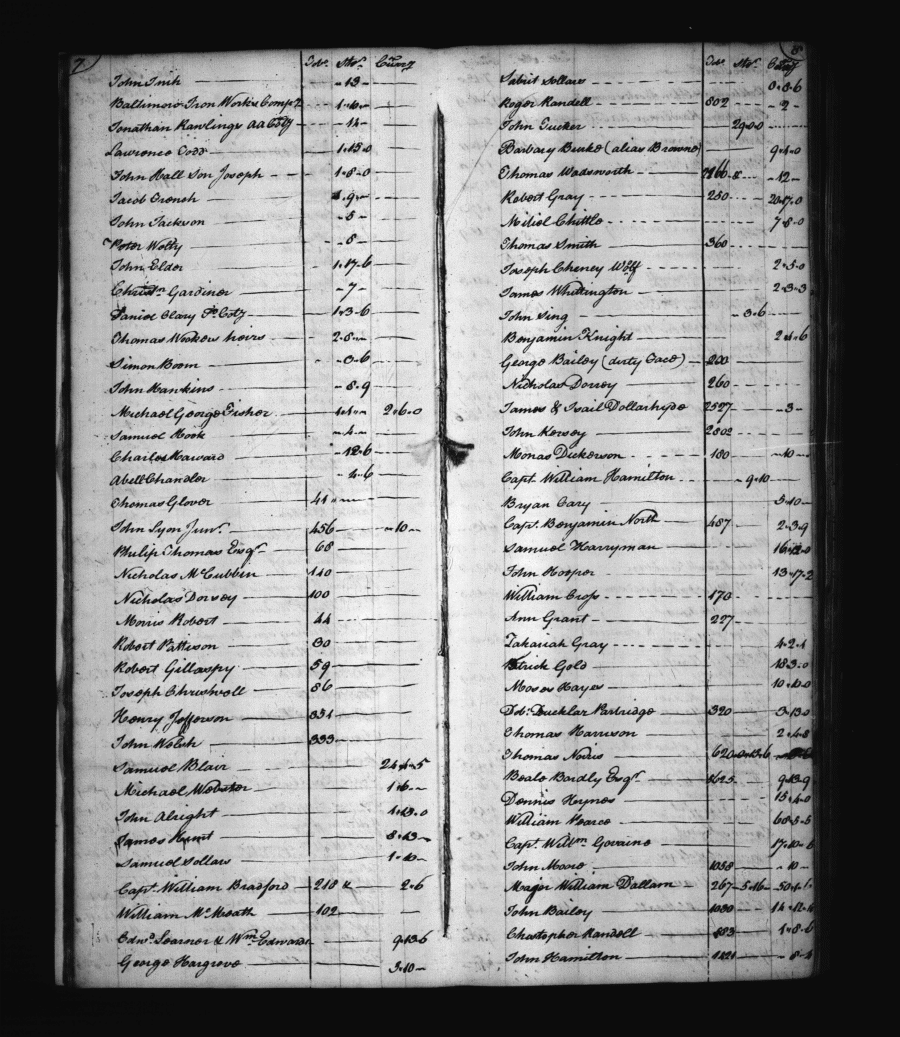 7
Tobo Ster Curry
John Inih - 13 -
Baltimore Iron Works Compy 1..6..-
Jonathan Rawlings AA Coty - 14 -
Lawrence 1..15..0
John Hall Son Joseph 1..8..0
Jacob French 9..-
John Jackson - 5 -
Peter Welty - 8 -
John Elder 1..17..6
Christn Gardiner - 7 -
Daniel Clary Fk Coty 1..3..6
Thomas Workers heirs 2..8..-
Simon Boom
John Hawkins - 8..9
Michael George Fisher 2..6..0
Samuel Hook - 4 -
Charles Haward - 12..6
Abell Chandler
Thomas Glover 41
John Lyon Junr. 456 - 10 -
Philip Thomas Esqr. 68
Nicholas McCubbin 140
Nicholas Dorsey 100
Morris Robert 44
Robert Pattison 30
Robert Gillaspy 59
Joseph Chriswell 86
Henry Jefferson 331
John Welsh 333
Samuel Blair
Michael Webster 1..6..-
John Alright 4..13..0
James Hunt 8..13..-
Samuel Sollars 1..10..-
Capt. William Bradford 218 2..6
William McMeath 102
Edwd. Learner & Wm. Edwards 9..13..6
George Hargrove 3..10..-
8
Sabrit Sollars 0..8..6
Roger Randell 802 - 2 -
John Tucker 29..0..0
Barbary Burke (alias Browne) 9..1..0
Thomas Wadsworth - 12 -
Robert Gray 250 20..17..0
Chittle 7..8..0
Thomas Smith 360
Joseph Cheney Wolf 2..5..0
James Whittington 2..3..3
John Sing - 3..6
Benjamin Knight
George Bailey (dirty Face) 200
Nicholas Dorsey 260
James & Isail Dollarhyde 2527 - 3 -
John Kersey 2802
Monas Dickerson 180 - 10 -
Capt. William Hamilton - 9..10
Bryan Cary 5..10
Capt. Benjamin North 487 2..3..9
Samuel Harryman
John Hooper 13..17..2
William Cross 170
Ann Grant 227
Zakariah Gray 4..2..1
Patrick Gold 18..3..0
Moses Hayes 10..10..0
Dob. Bucklar Partridge 320 3..13..0
Thomas Harrison 2..4..8
Thomas Norris 620
Beale Bordly Esqr. 9..13..9
Dennis Hynes 15..4..0
William Pearce 68..5..5
Capt. Willm. Govaine 17..10..6
John Moore 1038 - 10 -
Major William Dallam 267 - 5..16 -
John Bailey 1030
Christopher Randell 883
John Hamilton 1421